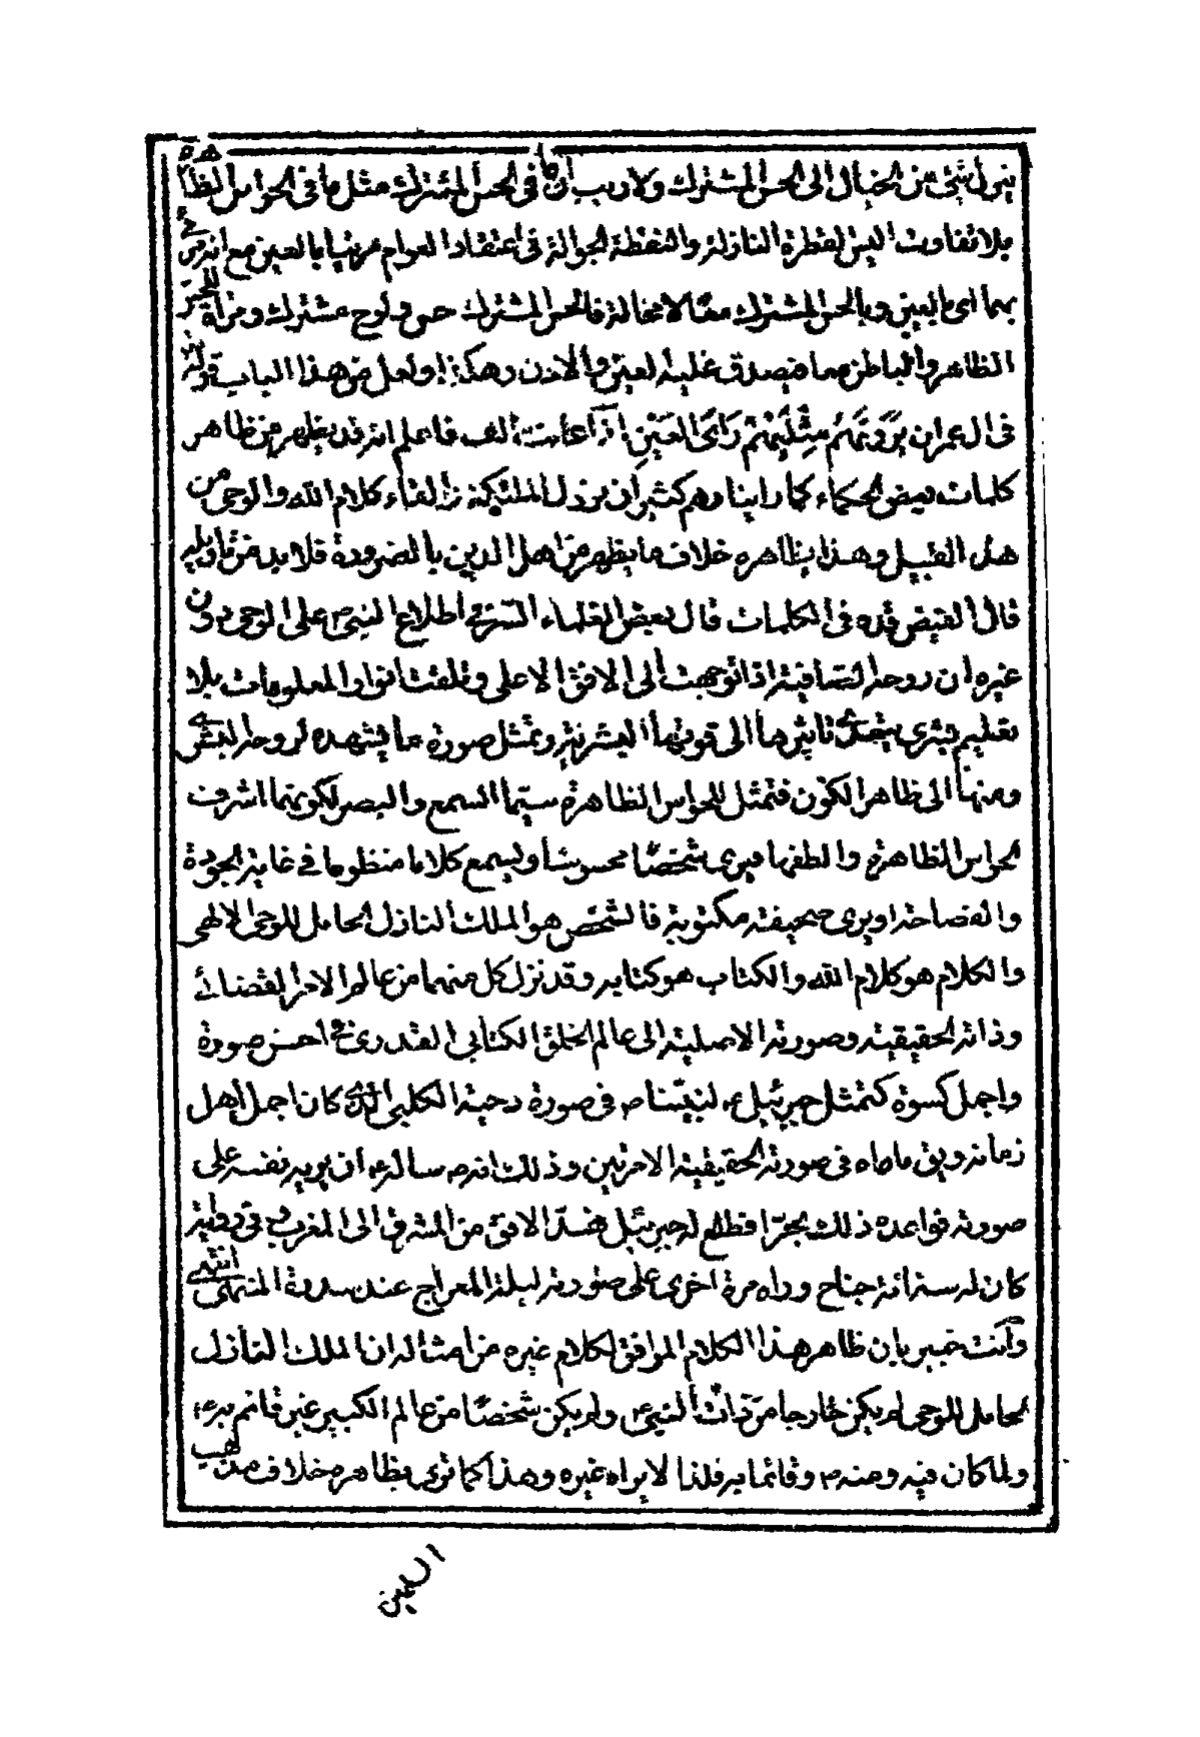 ينزل شئ من الخيال الى الحس المشترك ولا ريب ان ما فى الحس المشترك مثل ما فى الحواس الظاهره
بلا تفاوت اليس القطرة النازلة والنقطة الجوالة فى اعتقاد العوام مرئيا بالعين مع انه مرئى
بهما اى بالعين وبالحس المشترك معا لا محالة فالحس المشترك حس ولوح مشترك ومرآة للحس
الظاهر والباطن معا فيصدق عليه العين والاذن وهكذا ولعل من هذا الباب قوله تعالى
فى ال عمران يَرَوْنَهُمْ مِثْلَيْهِمْ رَاىَ العَيْنِ اذا علمت ذلك فاعلم انه قد يظهر من ظاهر
كلمات بعض الحكماء كما راينا وهم كثير ان نزول الملئكة والقاء كلام الله والوحى من
هذا القبيل وهذا بظاهره خلاف ما يظهر من اهل الدين بالضرورة فلا بد من تاويله
قال الفيض قده فى الكلمات قال بعض العلماء السر فى اطلاع النبى ص على الوحى دون
غيره ان روحه القدسية اذا توجهت الى الافق الاعلى وتلقت انوار المعلومات بلا
تعليم بشرى يتعدى تاثيرها الى قوتها البشرية وتمثل صورة ما يشهده لروحه البشرى
ومنها الى ظاهر الكون فتمثل للحواس الظاهرة سيما السمع والبصر لكونهما اشرف
الحواس الظاهرة والطفها فيرى شخصًا محسوسًا ويسمع كلاما منظوما فى غاية الجودة
والفصاحة او يرى صحيفة مكتوبة فالشخص هو الملك النازل الحامل للوحى الالهى
والكلام هو كلام الله والكتاب هو كتابه وقد نزل كل منهما من عالم الامر القضائى
وذاته الحقيقية وصورته الاصلية الى عالم الخلق الكتابى القدرى فى احسن صورة
واجمل كسوة كتمثل جبرئيل ع لنبينا ص فى صورة دحية الكلبى الذى كان اجمل اهل
زمانه ويق ما راه فى صورته الحقيقية الا مرتين وذلك انه ص ساله ع ان يريه نفسه على
صورته فواعده ذلك بحرا فطلع له جبرئيل فسد الافق من المشرق الى المغرب و فى رواية
كان له ستمائة جناح وراه مرة اخرى على صورته ليلة المعراج عند سدرة المنتهى انتهى
وانت خبير بان ظاهر هذا الكلام الموافق لكلام غيره من امثاله ان الملك النازل
الحامل للوحى لم يكن خارجا من ذات النبى ص ولم يكن شخصًا من عالم الكبير غير قائم به ع
ولما كان فيه ومنه ص وقائما به فلذا لا يراه غيره وهذا كما ترى بظاهره خلاف مذهب
المليين